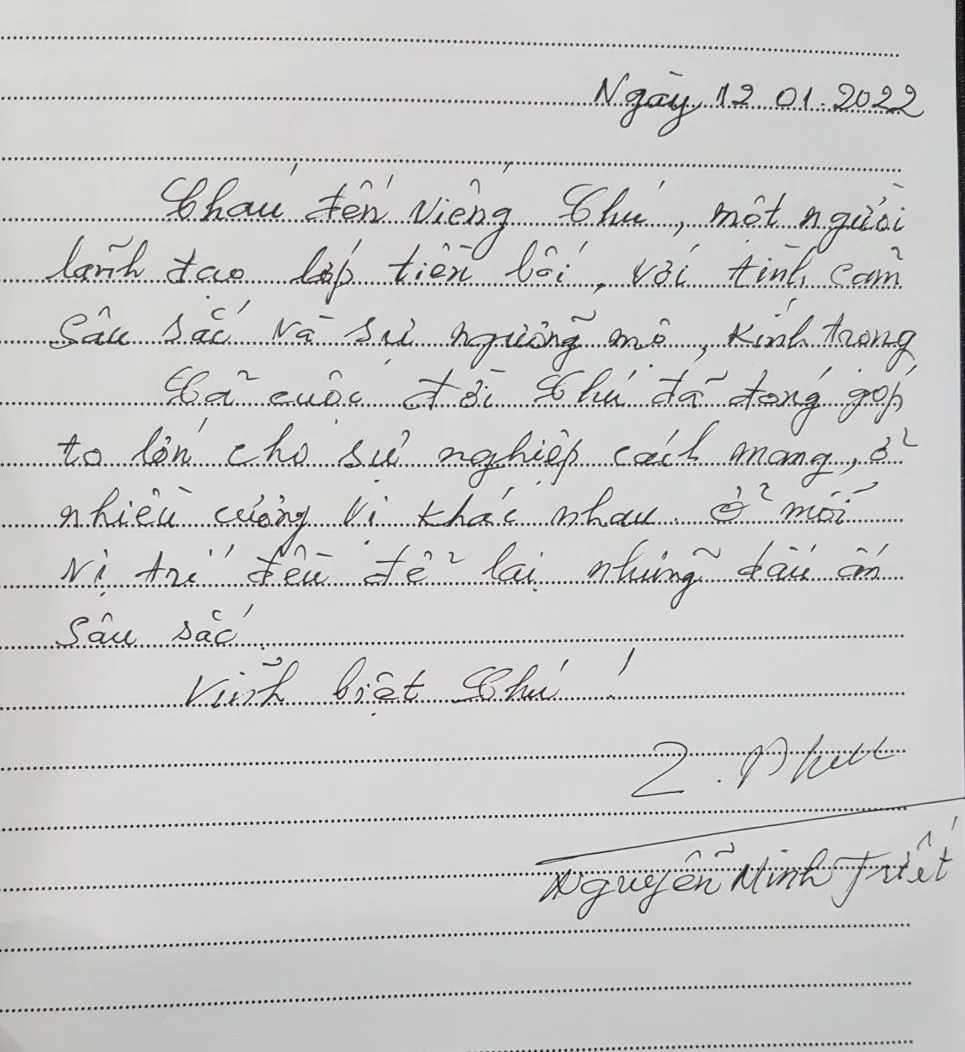 Ngày 12 01.2022
Cháu đến viếng Chú, một người
lãnh đạo lớp tiền bối, với tình cảm
sâu sắc và sự ngưỡng mộ, kính trọng
Cả cuộc đời Chú đã đóng góp
to lớn cho sự nghiệp cách mạng, ở
nhiều cương vị khác nhau. Ở mỗi
vị trí đều để lại những dấu ấn
sâu sắc
Vĩnh biệt Chú !
Nguyễn Minh Triết